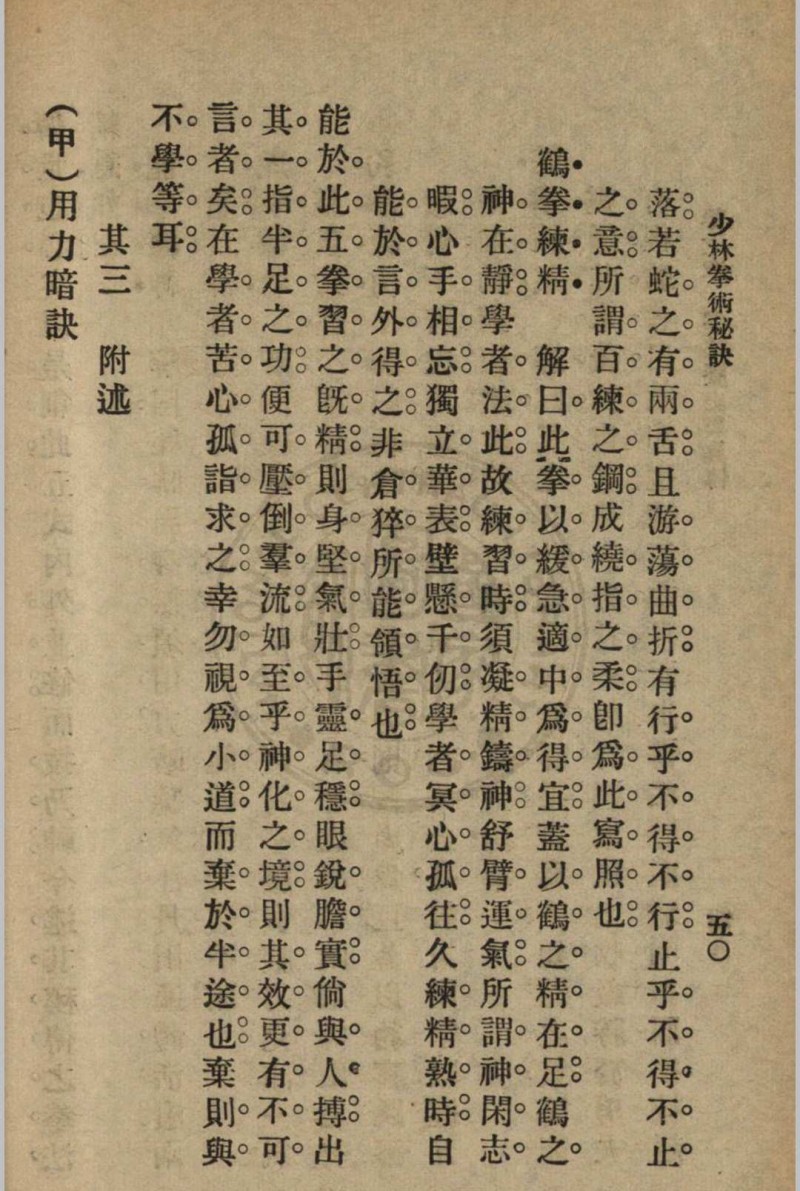 少林拳術秘訣　五〇
落若蛇之有兩舌且游蕩曲折有行乎不得不行止乎不得不止
之意所謂百練之鋼成繞指之柔卽爲此寫照也
鶴拳練精　解曰此拳以緩急適中爲得宜蓋以鶴之精在足鶴之
神在靜學者法此故練習時須凝精鑄神舒臂運氣所謂神閑志
暇心手相忘獨立華表壁懸千仞學者冥心孤往久練精熟時自
能於言外得之非倉猝所能領悟也
能於此五拳習之旣精則身堅氣壯手靈足穩眼銳膽實倘與人搏出
其一指半足之功便可壓倒羣流如至乎神化之境則其效更有不可
言者矣在學者苦心孤詣求之幸勿視爲小道而棄於半途也棄則與
不學等耳
其三　附述
（甲）用力暗訣